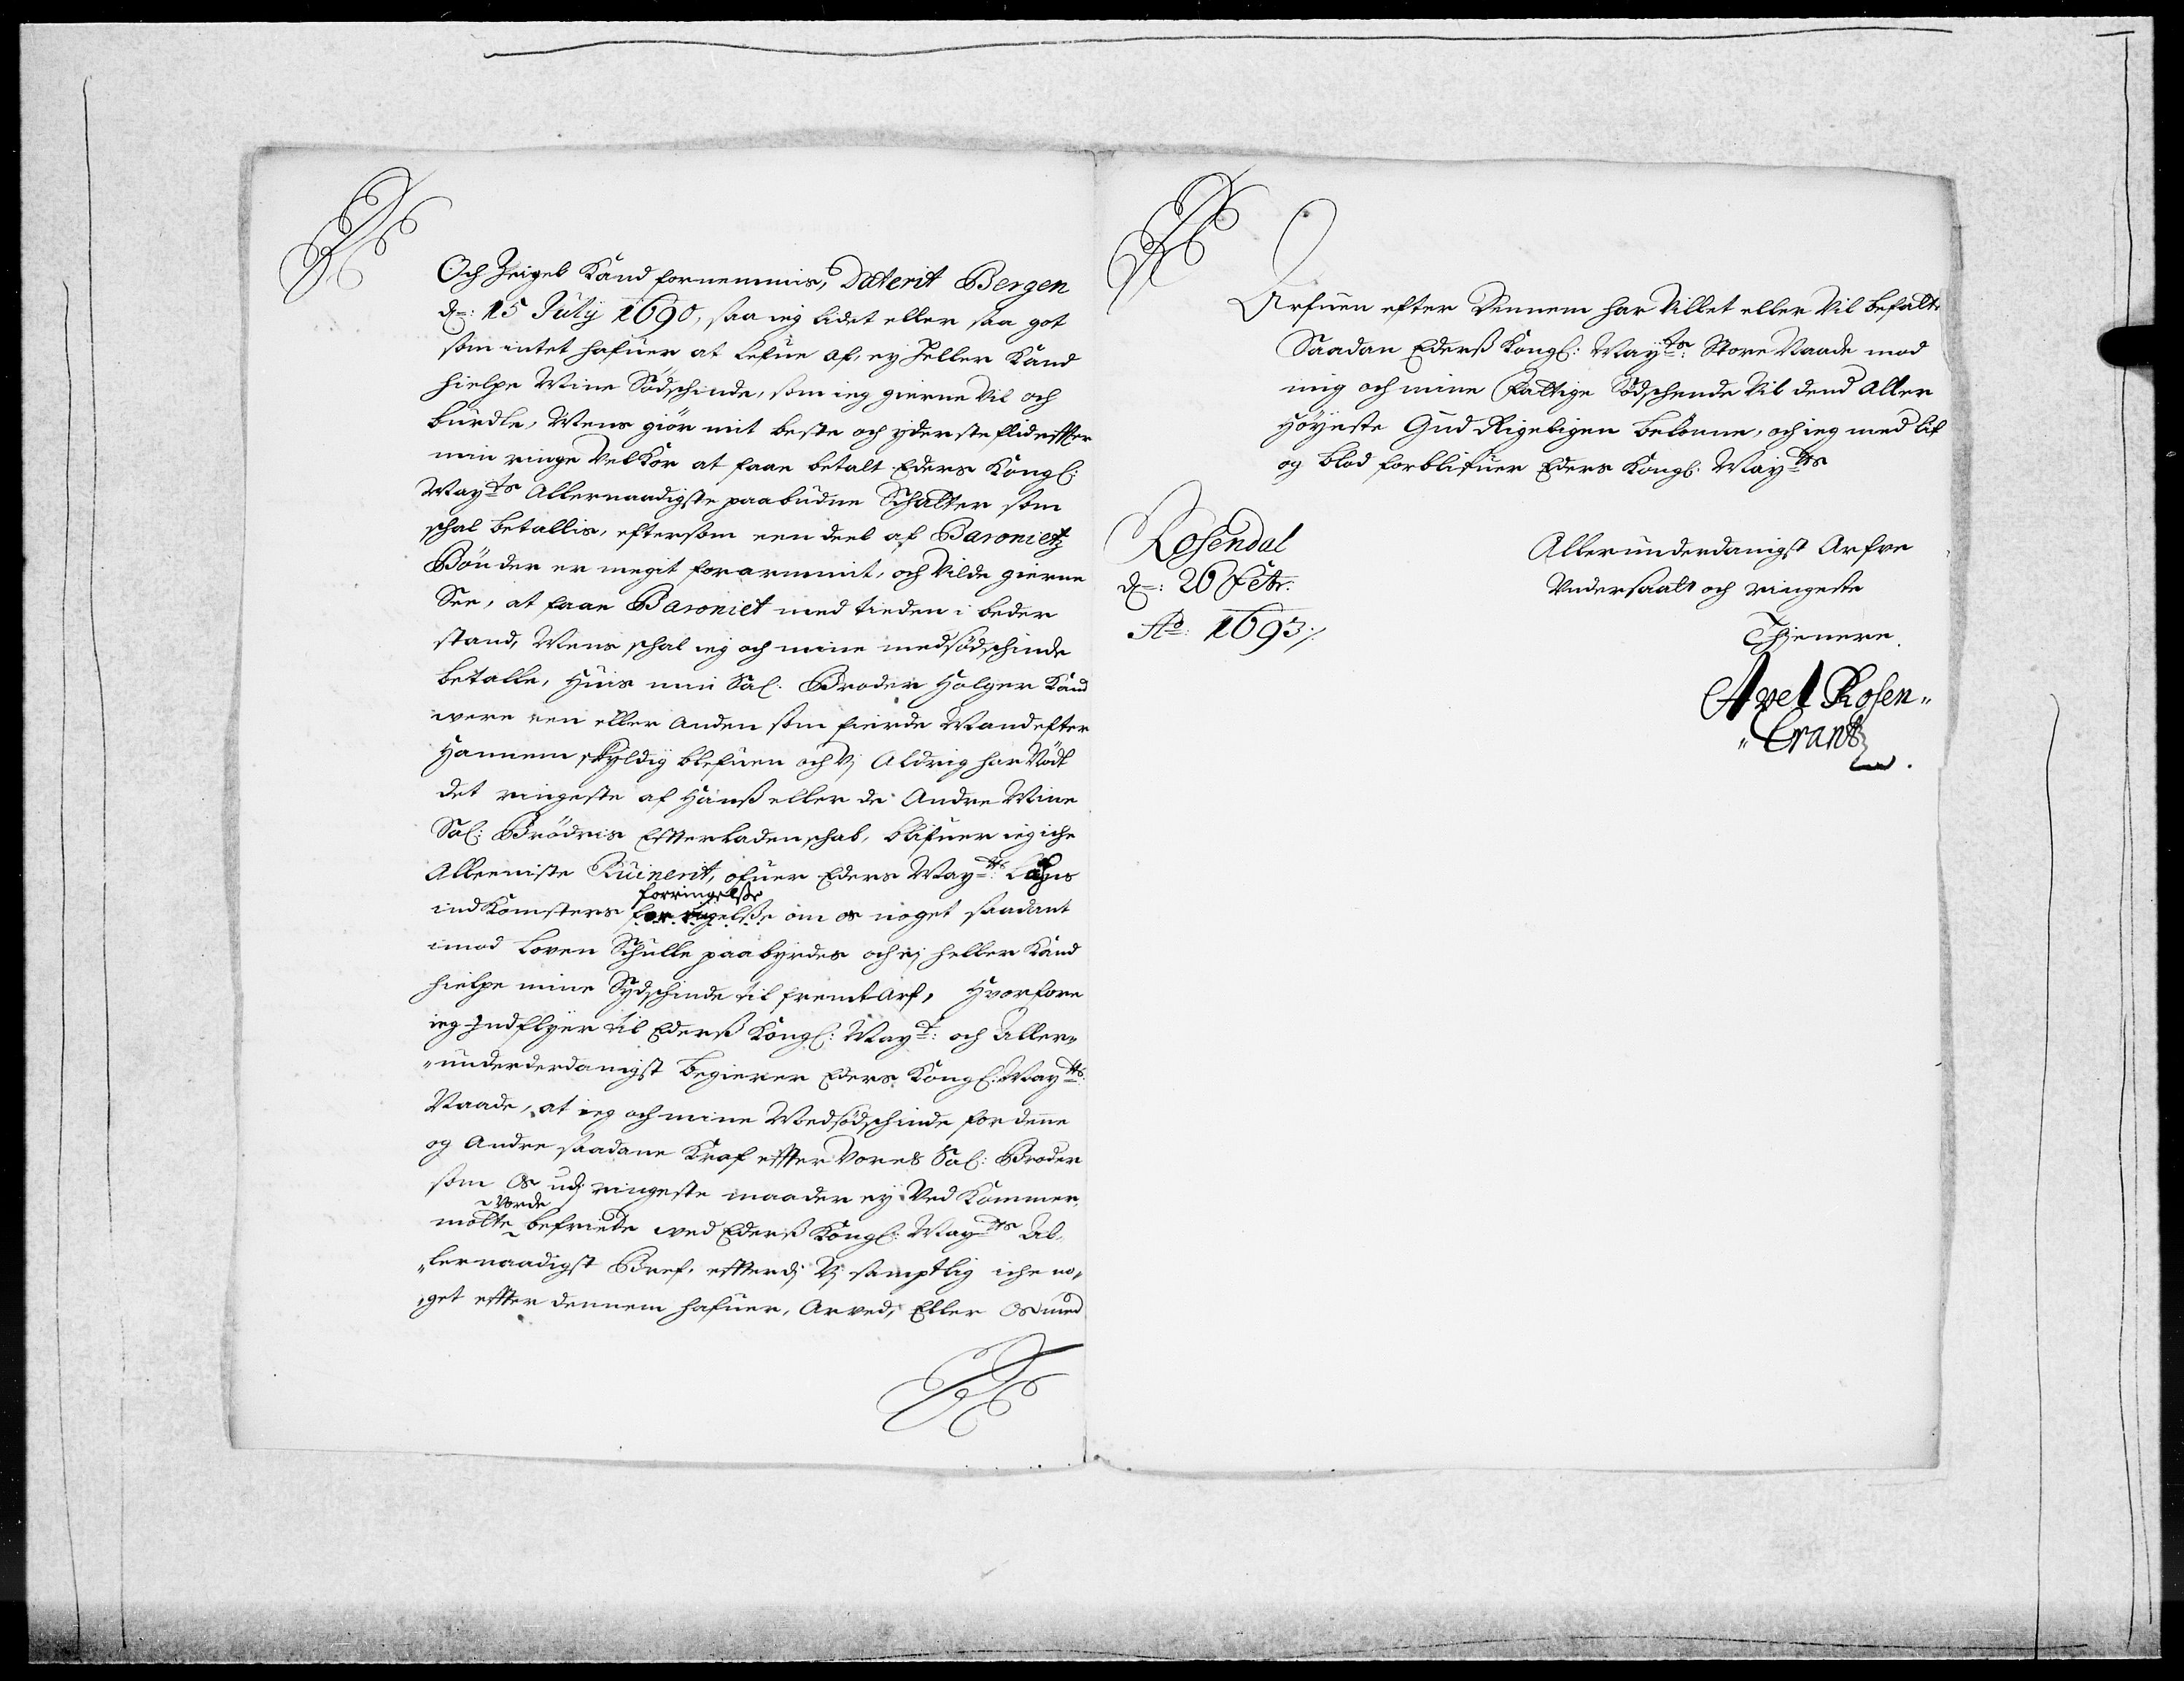 Och Zeigel Kand fornemmis, Daterit Bergen
d=: 15 Julÿ 1690, saa ieg lidet eller saa got
som intet hafuer at Lefue af, ey Heller Kand
hielpe Mine Sødschinde, som ieg gierne Vil och
burdte, Mens giør mit beste och yderste flid effter
min ringe Velkor at faae betalt Eders Kongl:
Maytts Allernaadigste paabudne Schatter som
schal betallis, eftersom een deel af Baronietz
Bønder er megit forarmmit, och Vilde gierne
See, at faae Baroniet med tieden i beder
stand, Mens schal ieg och mine medsødschinde
betalle, Huis min Sal. Broder Holger Kand
were een eller anden som fierde Mand efter
Hannem skyldig blefuen och Vj Aldrig har Nødt
det ringeste af Hanß eller de Andre Mine
Sal: Brødris Effterladenschab, blifuer ieg iche
Alleeniste Ruinerit, ofuer Eders Maytts:
indkomsters forringelße om os noget saadant
forringelße
imod Loven Schulle paabyrdes och ej heller Kand
hielpe mine Sydschinde til fremt Arf, Hvorfore
ieg Indflyer til Ederß Kongl: Mayt: och Aller„
„underderdanigst begierer Eders Kongl: Maytts:
Naade, at ieg och mine Medsødschinde for denne
og Andre saadane Kraf effter Vores Sal: Broder
som Os udj ringeste maader ey Ved Kommer,
motte Vorde befriede ved Ederß Kongl: Maytts Al„
„lernaadigst Bref, effterdj Vj samptlig iche no„
„get effter dennem hafuer, Arved, Eller Os med
Arfuen efter Dennem har Villet eller Vil befatte
Saadan Ederß Kongl: Maytts: Store Naade mod
mig och mine fattige Sødschende Vil dend Aller
Høyeste Gud Rigeligen belønne, och ieg med lif
og blod forblifuer Eders Kongl: Maytts
Rosendal
d=: 26 Febr:
Ao: 1693
Allerunderdanigst Arfve
Undersaatt och ringeste
Thienere.
Axel Rosen„
„Crantz